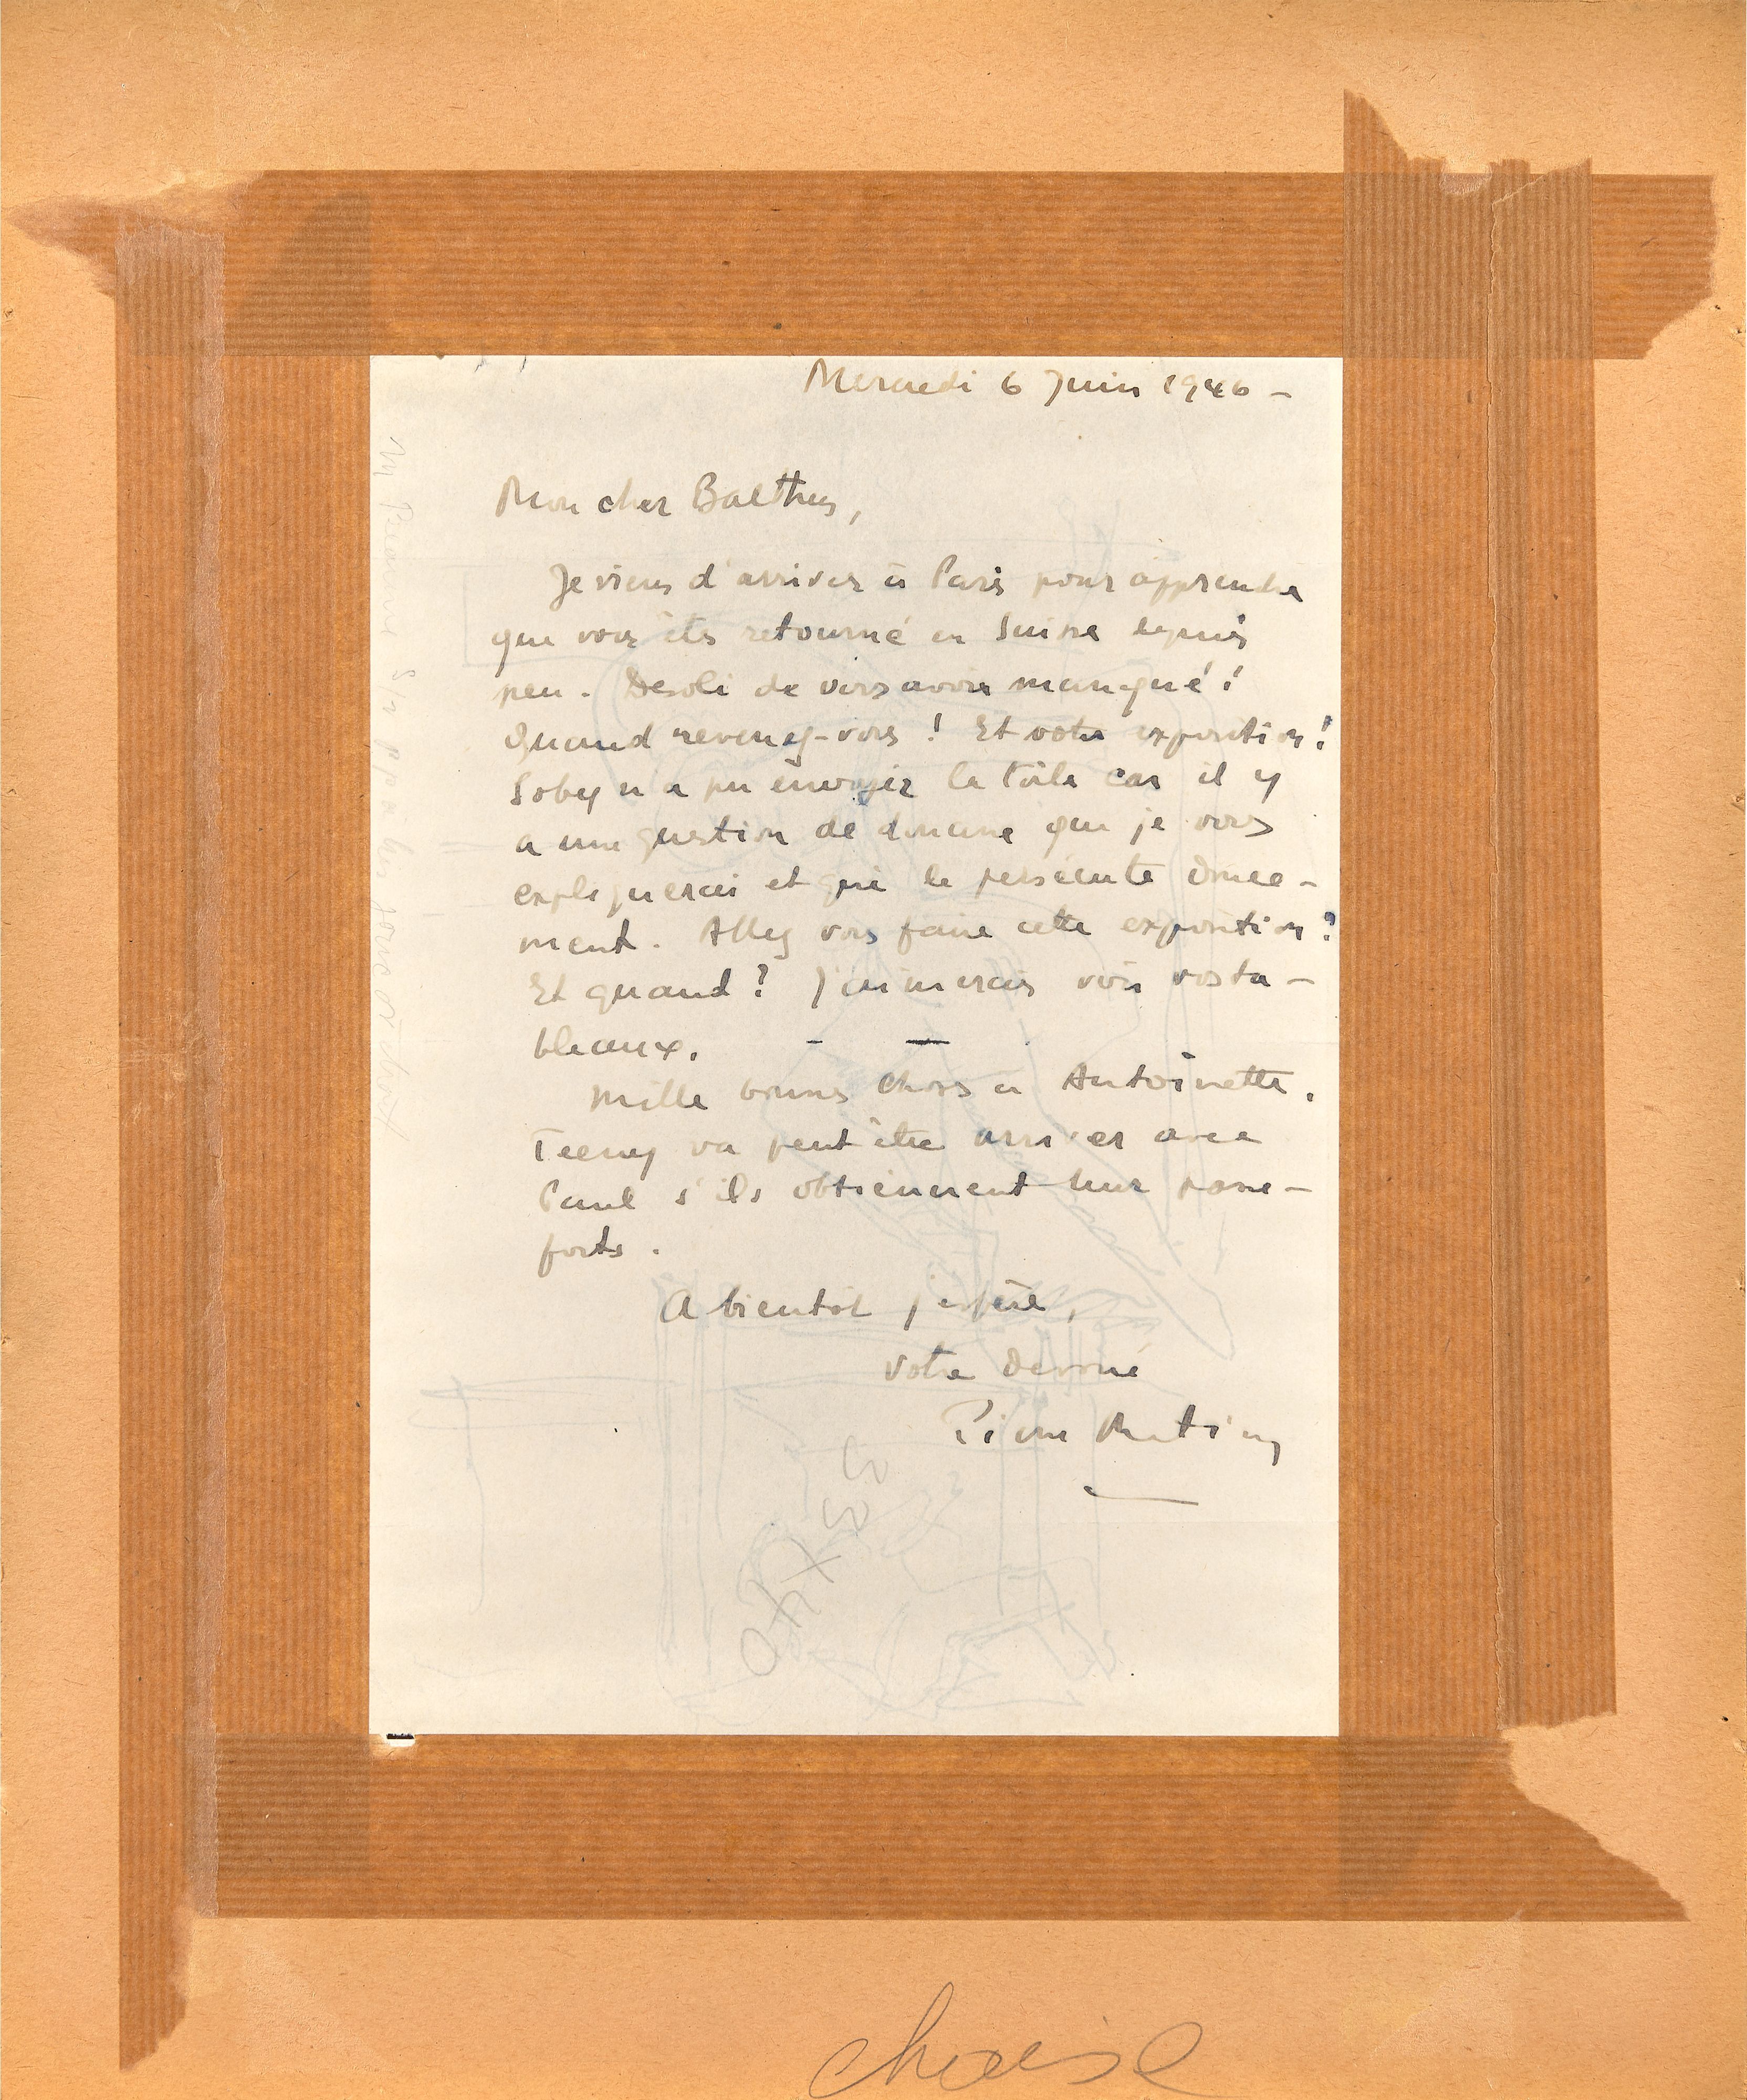 Mercredi 6 Juin 1946 –
Mon cher Balthus,
Je viens d'arriver à Paris pour apprendre
que vous êtes retourné en Suisse depuis
peu. Désolé de vous avoir manqué!
Quand revenez-vous! Et votre exposition!
Soby n'a pu envoyer la toile car il y
a une question de douane que je vous
expliquerai et qui le persécute douce-
ment. Allez vous faire cette exposition?
Et quand? J'aimerais voir vos ta-
bleaux. – —
Mille bonnes choses à Antoinette.
Teeny va peut être arriver avec
Paul s'ils obtiennent leur passe-
ports.
A bientôt j'espère,
Votre dévoué
Pierre Matisse
chaise